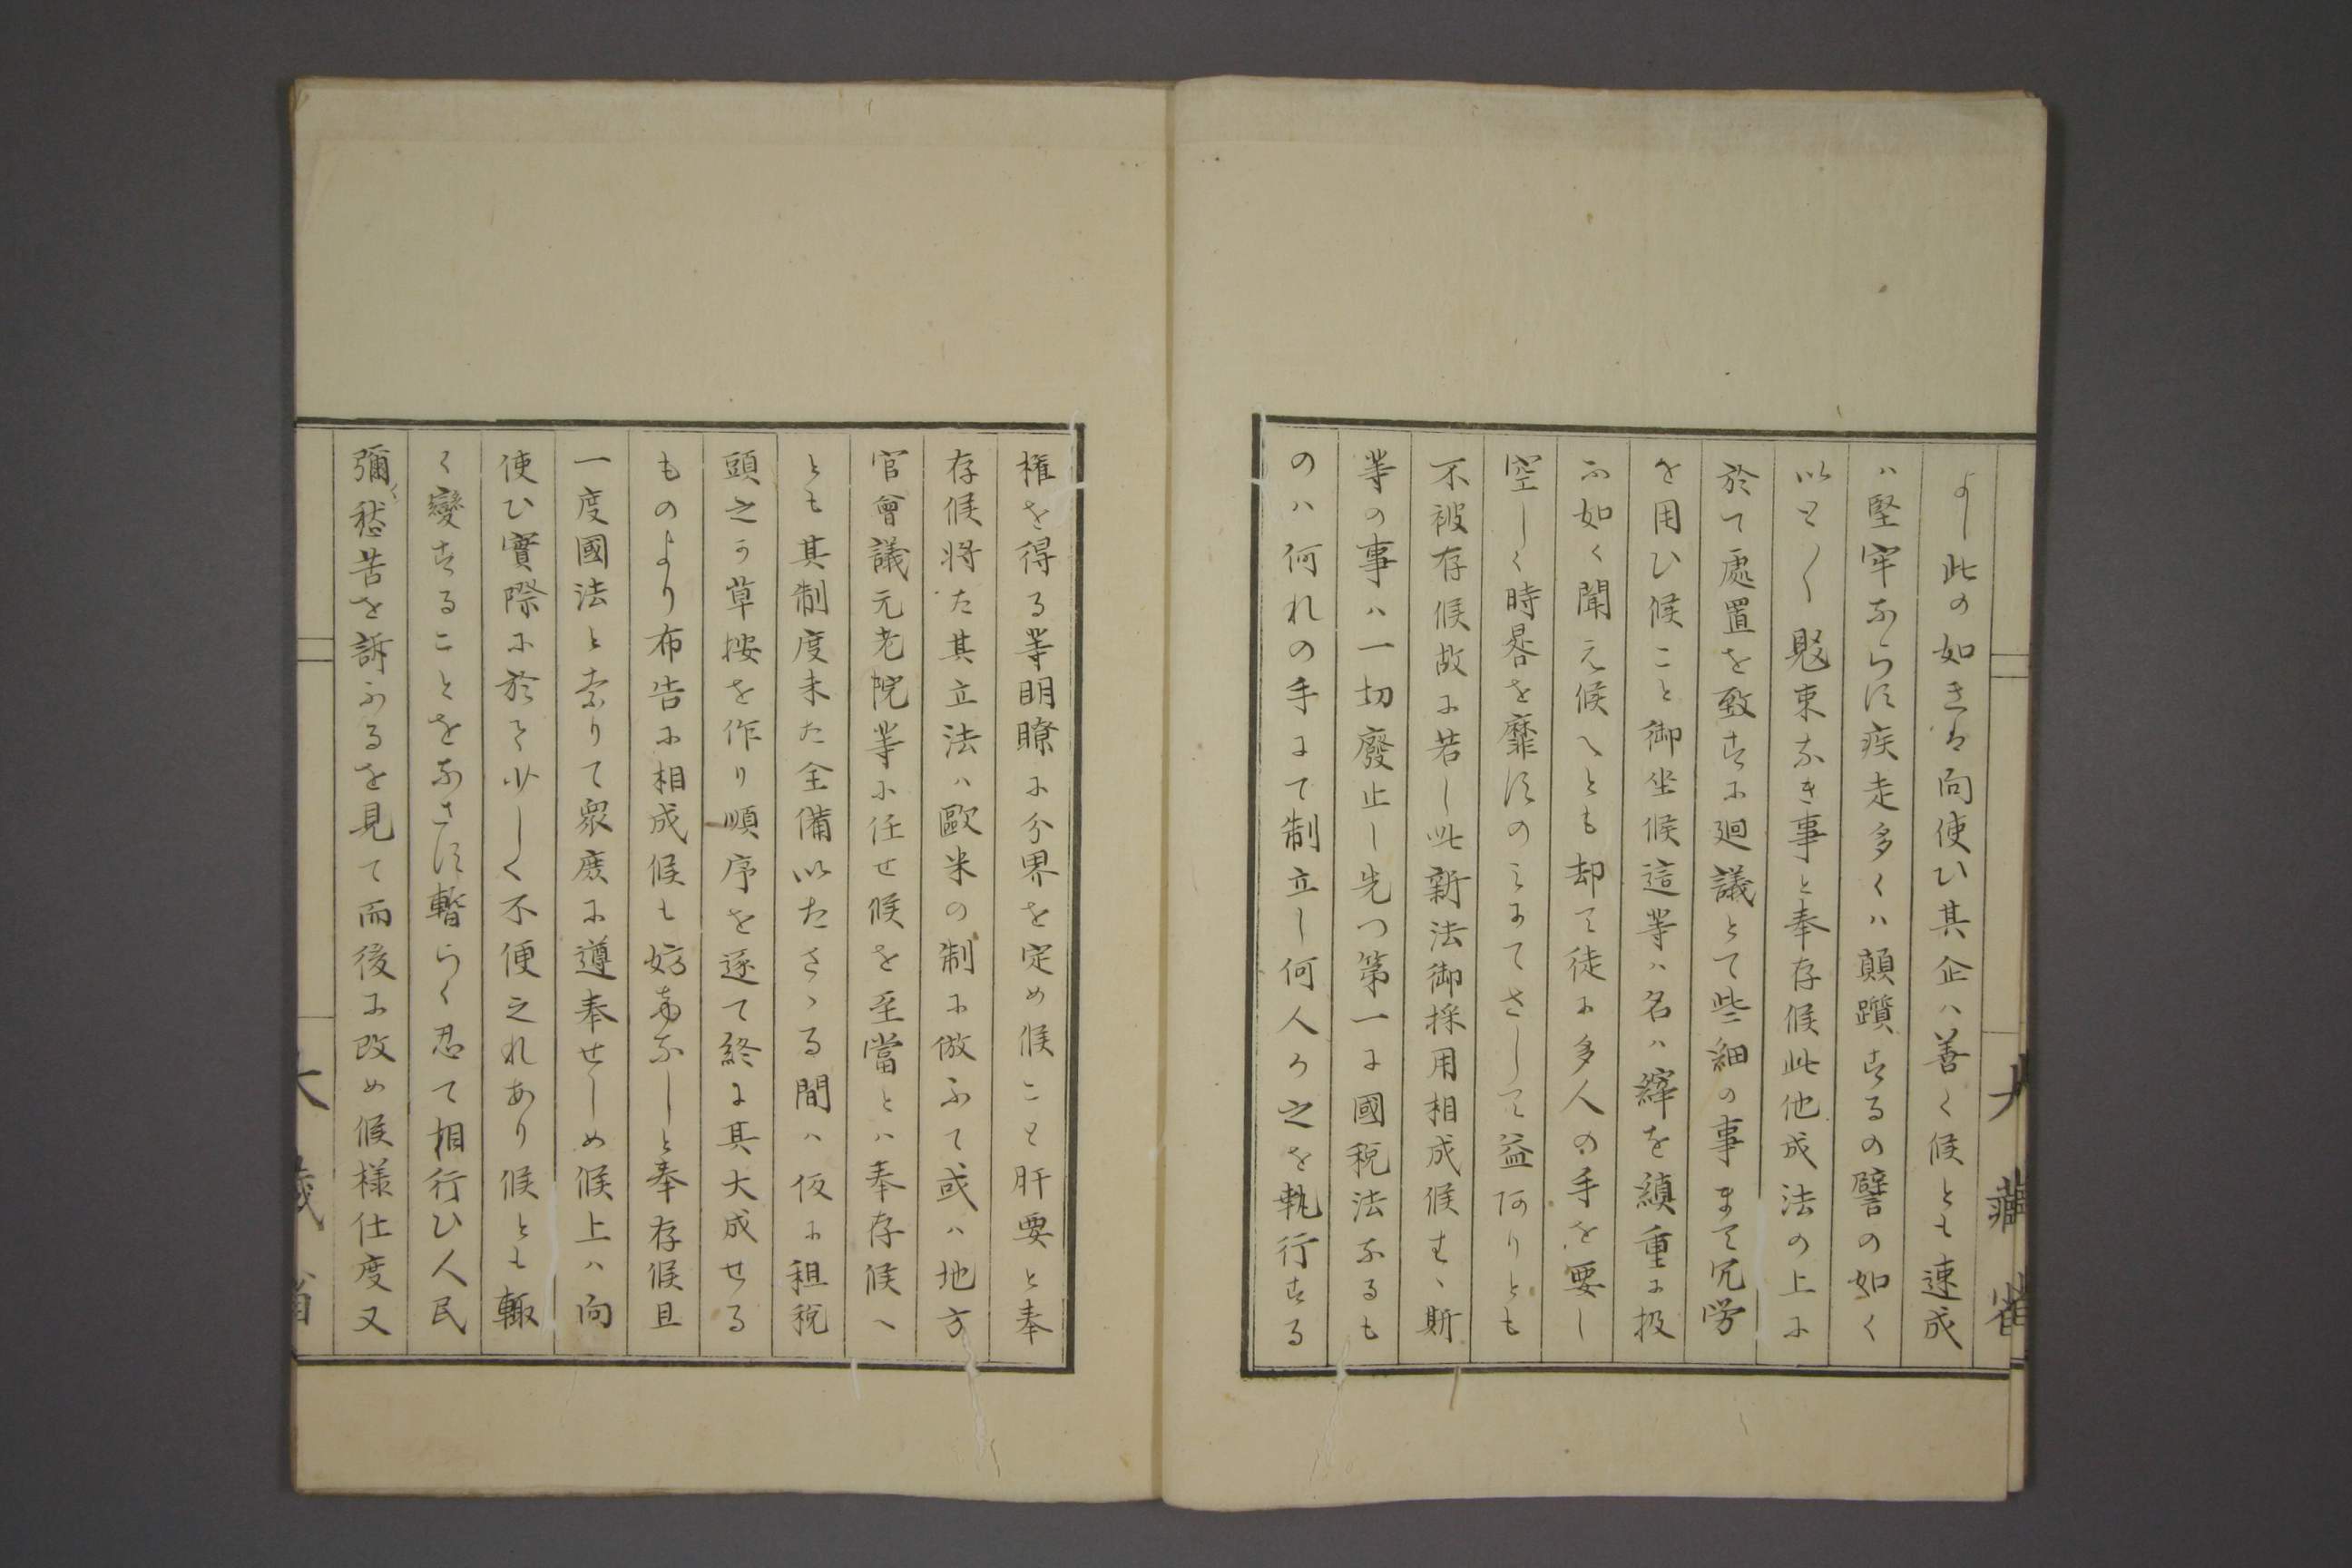 よし此の如きは向使ひ其企ハ善く候とも速成
ハ堅牢ならす疾走多くハ顛躓するの譬の如く
以と〱覐束なき事と奉存候此他成法の上に
於て處置を致すに廻議とて些細の事まて冗労
を用ひ候こと御坐候這等ハ名ハ繹を縝重に扱
ふ如く聞え候へとも却て徒に多人の手を要し
空しく時晷を靡すのみにてさして益阿りとも
不被存候故に若し此新法御採用相成候はゝ斯
等の事ハ一切廢止し先つ第一に國税法なるも
のハ何れの手にて制立し何人か之を執行する
大藏省
権を得る等明瞭に分界を定め候こと肝要と奉
存候将た其立法ハ歐米の制に倣ふて或ハ地方
官會議元老院等に任せ候を至當とハ奉存候へ
とも其制度未た全備以たさゝる間ハ仮に租税
頭之か草按を作り順序を逐て終に其大成せる
ものより布告に相成候も妨希なしと奉存候且
一度國法と奈りて衆庶に遵奉せしめ候上ハ向
使ひ實際に於て少しく不便之れあり候とも輙
く變することをなさす暫らく忍て相行ひ人民
彌〻愁苦を訴ふるを見て而後に改め候様仕度又
大蔵省